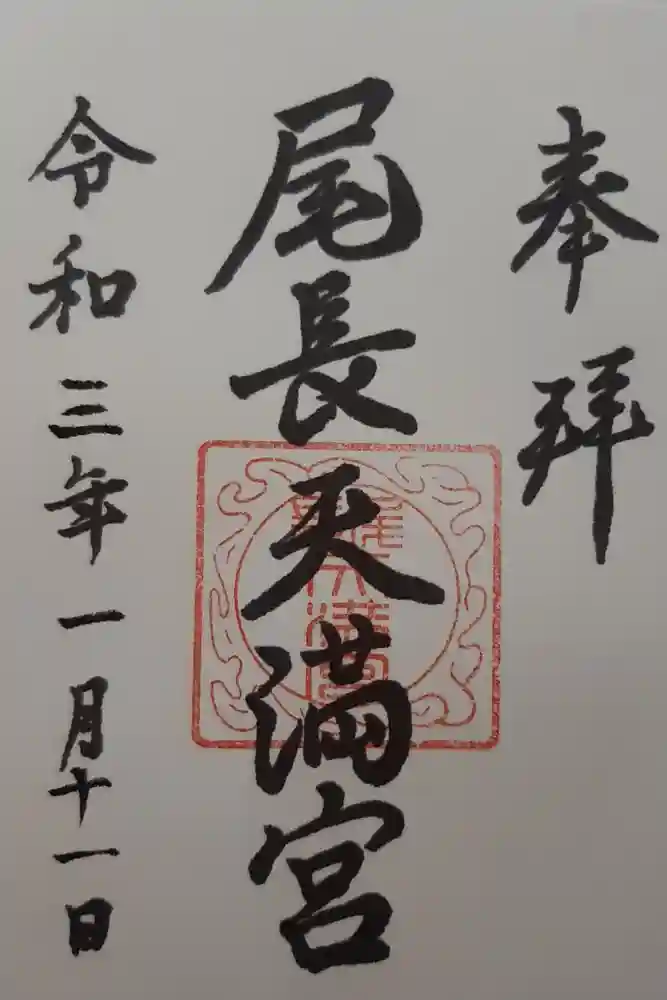 奉拜
尾長天満宮
令和三年一月十一日